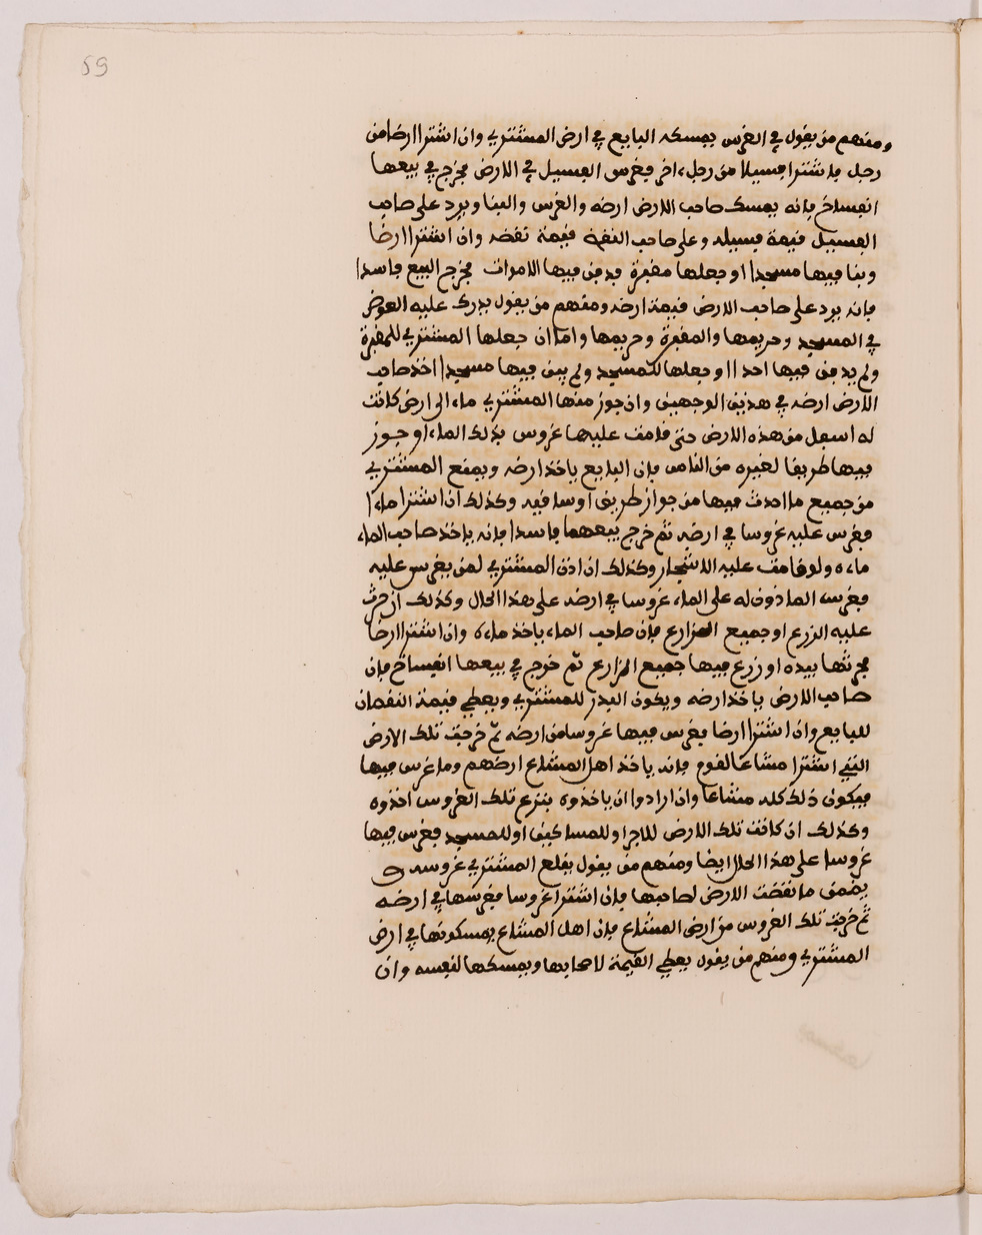 59
ومنهم من يقول في الغرس يمسكه البايع في ارض المشتري وان اشترا ارضا من
رجل فاشترا فسيلا من رجل ءاخر فغرس الفسيل في الارض فخرج في بيعها
انفساخ فانه يمسك صاحب الارض ارضه والغرس والبنا ويرد على صاحب
الفسيل قيمة فسيله وعلى صاحب النقض قيمة نقضه وان اشترا ارضا
وبنا فيها مسجدا او جعلها مقبرة فدفن فيها الاموات فخرج البيع فاسدا
فانه يرد على صاحب الارض قيمة ارضه ومنهم من يقول يدرك عليه العوض
في المسجد وحريمها والمقبرة وحريمها واما ان جعلها المشتري للمقبرة
ولم يدفن فيها احدا او جعلها للمسجد ولم يبن فيها مسجدا اخذ صاحب
الارض ارضه في هذين الوجهين وان جوز منها المشتري ماء الى ارض كانت
له اسفل من هذه الارض حتى قامت عليها غروس بذلك الماء او جوز
فيها طريقا لغيره من الناس فان البايع ياخذ ارضه ويمنع المشتري
من جميع ما احدث فيها من جواز طريق او ساقية وكذلك ان اشترا ماءا
فغرس عليه غروسا في ارضه ثم خرج بيعهما فاسدا فانه ياخذ صاحب الماء
ماءه ولو قامت عليه الاشجار وكذلك ان اذن المشتري لمن يغرس عليه
فغرس الماذون له على الماء غروسا في ارضه على هذا الحال وكذلك ان حرث
عليه الزرع او جميع المزارع فان صاحب الماء ياخذ ماءه وان اشترا ارضا
فحرثها بيده او زرع فيها جميع المزارع ثم خرج في بيعها انفساخ فان
صاحب الارض ياخذ ارضه ويكون البذر للمشتري ويعطي قيمة النقصان
للبايع وان اشترا ارضا فغرس فيها غروسا من ارضه ثم خرجت تلك الارض
التي اشترا مشاعا لقوم فانه ياخذ اهل المشاع ارضهم وما غرس فيها
فيكون ذلك كله مشاعا وان ارادوا ان ياخذوه بنزع تلك الغروس اخذوه
وكذلك ان كانت تلك الارض للاجر او للمساكين او للمسجد فغرس فيها
غروسا على هذا الحال ايضا ومنهم من يقول يقلع المشتري غروسه و
يضمن ما نقضت الارض لصاحبها فان اشترا غروسا فغرسها في ارضه
ثم خرجت تلك الغروس من ارض المشاع فان اهل المشاع يمسكونها في ارض
المشتري ومنهم من يقول يعطي القيمة لاصحابها ويمسكها لنفسه وان